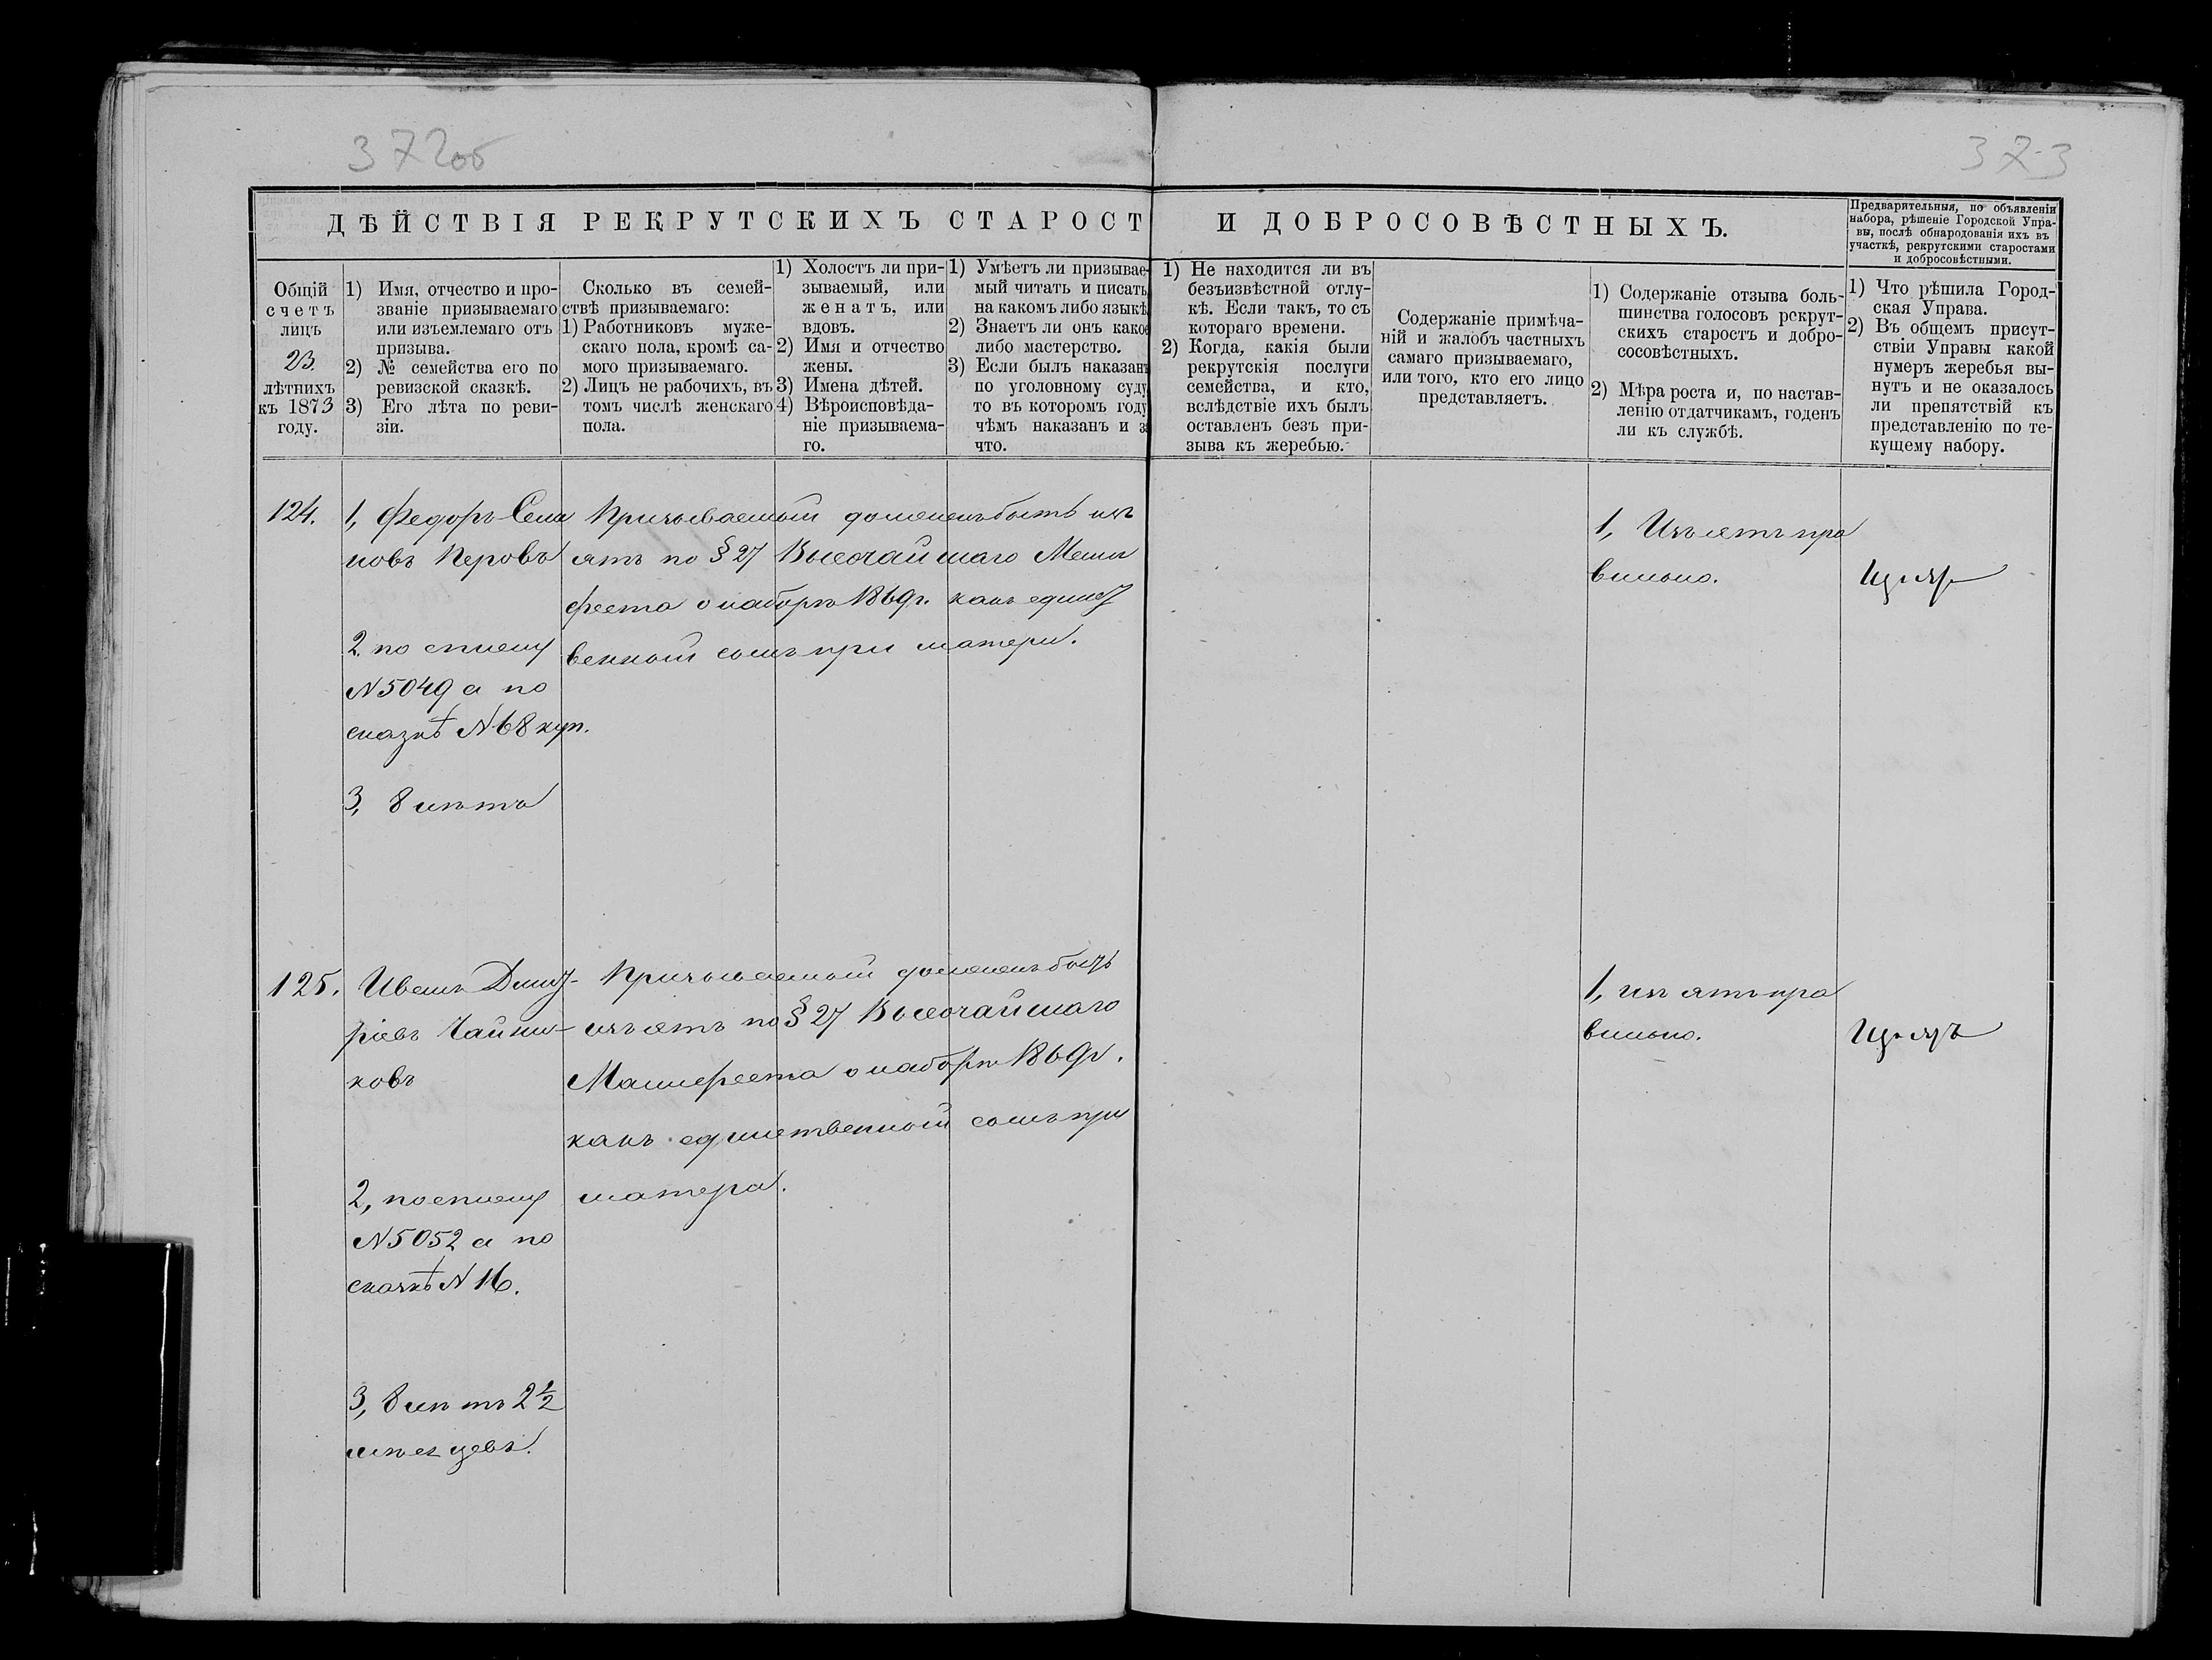 372об
373
ДѢЙСТВІЯ РЕКРУТСКИХЪ СТАРОСТ И ДОБРОСОВѢСТНЫХЪ.
Предварительныя, по объявленіи
набора, рѣшеніе Городской Упра-
вы, послѣ обнародованія ихъ въ
участкѣ, рекрутскими старостами
и добросовѣстными.
Общій
счетъ
лицъ
23.
лѣтнихъ
къ 1873
году.
1) Имя, отчество и про-
званіе призываемаго
или изъемлемаго отъ
призыва.
2) № семейства его по
ревизской сказкѣ.
3) Его лѣта по реви-
зіи.
Сколько въ семей-
ствѣ призываемаго:
1) Работниковъ муже-
скаго пола, кромѣ са-
мого призываемаго.
2) Лицъ не рабочихъ, въ
томъ числѣ женскаго
пола.
1) Холостъ ли при-
зываемый, или
женатъ, или
вдовъ.
2) Имя и отчество
жены.
3) Имена дѣтей.
4) Вѣроисповѣда-
ніе призываема-
го.
1) Умѣетъ ли призывае-
мый читать и писать
на какомъ либо языкѣ
2) Знаетъ ли онъ какое
либо мастерство.
3) Если былъ наказанъ
по уголовному суду
то въ которомъ году
чѣмъ наказанъ и за
что.
1) Не находится ли въ
безъизвѣстной отлу-
кѣ. Если такъ, то съ
котораго времени.
2) Когда, какія были
рекрутскія послуги
семейства, и кто,
вслѣдствіе ихъ былъ
оставленъ безъ при-
зыва къ жеребью.
Содержаніе примѣча-
ній и жалобъ частныхъ
самаго призываемаго,
или того, кто его лицо
представляетъ.
1) Содержаніе отзыва боль-
шинства голосовъ рекрут-
скихъ старостъ и добро-
сосовѣстныхъ.
2) Мѣра роста и, по настав-
ленію отдатчикамъ, годенъ
ли къ службѣ.
1) Что рѣшила Город-
ская Управа.
2) Въ общемъ присут-
ствіи Управы какой
нумеръ жеребья вы-
нутъ и не оказалось
ли препятствій къ
представленію по те-
кущему набору.
124.
1, Федоръ Семе
новъ Перовъ
2. по списку
N 5049 а по
сказкѣ N 68 куп.
3, 8 лѣтъ
Призываемый долженъ быть изъ
ятъ по § 27 Высочайшаго Мани
феста о наборѣ 1869 г. какъ единст
венный сынъ при матери.
1, Изъятъ пра
вильно.
125.
Иванъ Дмит-
ріевъ Чайни-
ковъ
2, по списку
N 5052 а по
сказкѣ N 16.
3, 8 лѣтъ 2 ½
мѣсяцевъ.
Призываемый долженъ быть
изъятъ по § 27 Высочайшаго
Манифеста о наборѣ 1869 г.
какъ единственный сынъ при
матери.
1, изъятъ пра
вильно.